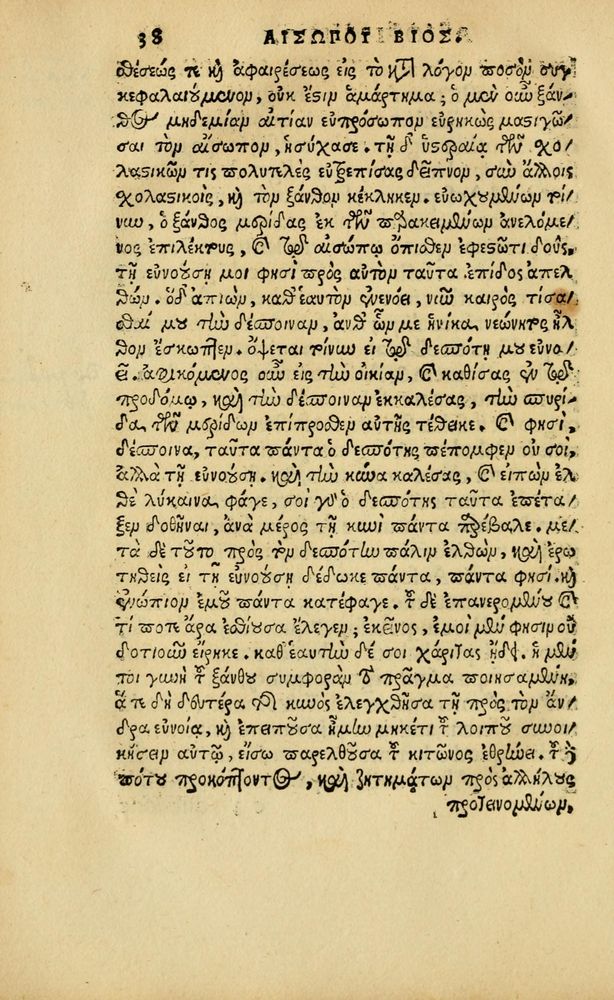 38 ΑΙΣΩΠΟΥ ΒΙΟΣ.
θέσεώς τε κὴ ἀφαιρέσεως εἰς τὸ κτ λόγον ποσὸν συγ
κεφαλαιούμενον, οὐκ ἔστιν ἁμάρτημα; ὁ μὲν οὖν ξάν-
θος μηδεμίαν αἰτίαν εὐπρόσωπον εὑρηκὼς μαστιγῶ-
σαι τὸν αἴσωπον, ἡσύχασε. τῇ δ' ὑστεραίᾳ τῶν σχο-
λαστικῶν τις πολυτελὲς εὐτρεπίσας δεῖπνον, σὺν ἄλλοις
σχολαστικοῖς, κὴ τὸν ξάνθον κέκληκεν. εὐωχουμένων τοί-
νυν, ὁ ξάνθος μερίδας ἐκ τῶν παρακειμένων ἀνελόμε-
νος ἐπιλέκτους, καὶ τῷ αἰσώπῳ ὄπισθεν ἐφεστῶτι δοὺς,
τῇ εὐνοούσῃ μοι φησὶ πρὸς αὐτὸν ταῦτα ἐπίδος ἀπελ
θών. ὁ δ' ἀπιὼν, καθ' ἑαυτὸν ἐνενόει, νῦν καιρὸς τίσα-
σθαί μου τὴν δέσποιναν, ἀνθ' ὧν με ἡνίκα νεώνητος ἦλ
θον ἔσκωπτεν. ὄψεται τοίνυν εἰ τῷ δεσπότῃ μου εὐνο-
εῖ. ἀφικόμενος οὖν εἰς τὴν οἰκίαν, καὶ καθίσας ἐν τῷ
προδόμῳ, καὶ τὴν δέσποιναν ἐκκαλέσας, τὴν σπυρί-
δα τῶν μερίδων ἐπίπροσθεν αὐτῆς τέθεικε. καὶ φησὶ,
δέσποινα, ταῦτα πάντα ὁ δεσπότης πέπομφεν οὐ σοὶ,
ἀλλὰ τῇ εὐνοούσῃ. καὶ τὴν κύνα καλέσας, καὶ εἰπὼν ἐλ
θὲ λύκαινα, φάγε, σοὶ γὰρ ὁ δεσπότης ταῦτα ἐπέτα-
ξεν δοθῆναι, ἀνὰ μέρος τῇ κυνὶ πάντα προέβαλε. με-
τὰ δὲ τοῦτο πρὸς τὸν δεσπότην πάλιν ἐλθὼν, καὶ ἐρω
τηθεὶς εἰ τῇ εὐνοούσῃ δέδωκε πάντα, πάντα φησὶ. κὴ
ἐνώπιον ἐμοῦ πάντα κατέφαγε. τοῦ δὲ ἐπανερομένου καὶ
τί ποτε ἄρα ἐσθίουσα ἔλεγεν; ἐκεῖνος, ἐμοὶ μὲν φησὶν οὐ
δοτιοῦν εἴρηκε. καθ' ἑαυτὴν δέ σοι χάριτας ᾔδει. ἡ μέν
τοι γυνὴ τοῦ ξάνθου συμφορὰν τὸ πρᾶγμα ποιησαμένη,
ἅτε δὴ δευτέρα καὶ κυνὸς ἐλεγχθεῖσα τῇ πρὸς τὸν ἄν-
δρα εὐνοίᾳ, κὴ ἐπειποῦσα ἦ μὴν μηκέτι τοῦ λοιποῦ συνοι-
κήσειν αὐτῷ, εἴσω παρελθοῦσα τοῦ κιτῶνος ἐθρήνει. τοῦ δὲ
πότου προκόπτοντος, καὶ ζητημάτων πρὸς ἀλλήλους
προτεινομένων,